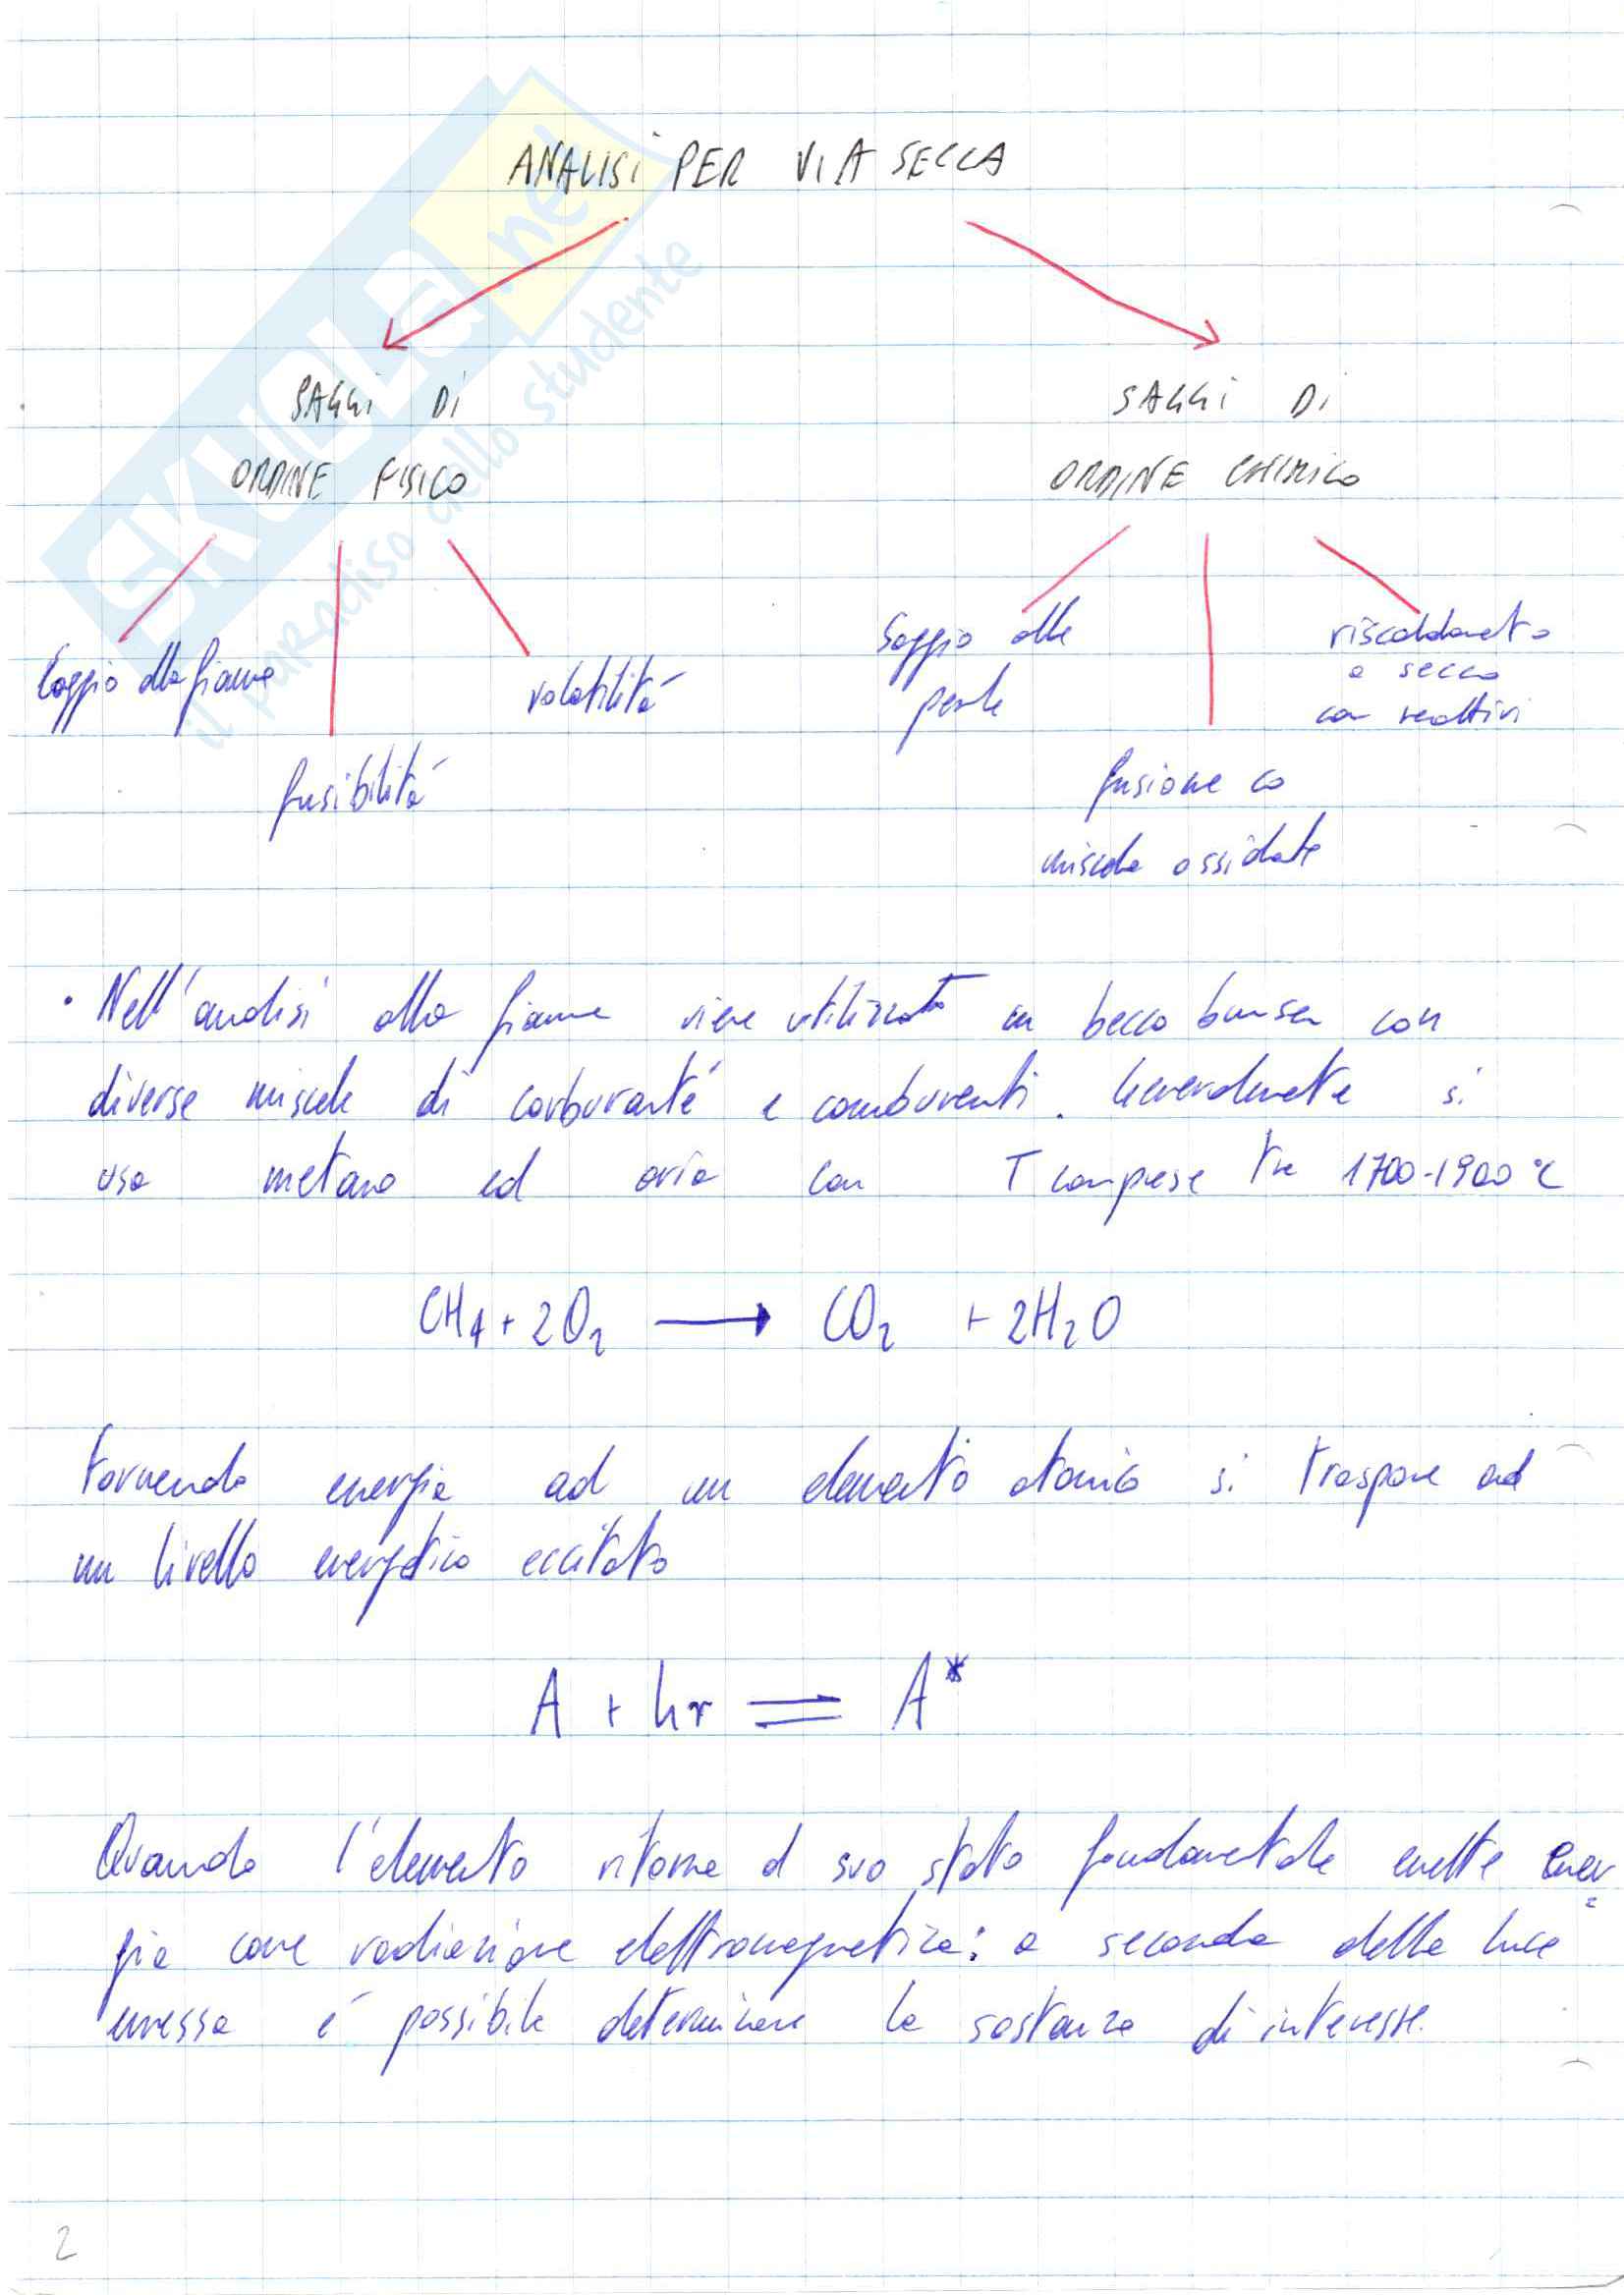 ANALISI PER VIA SECCA
SAGGI DI
ORDINE FISICO
SAGGI DI
ORDINE CHIMICO
Saggio alla fiamma
fusibilità
volatilità
Saggio alle
perle
fusione co
miscela ossidate
riscaldamento
a secco
con reattivi
• Nell'analisi alla fiamma viene utilizzato un becco bunsen con
diverse miscele di carburanté e comburenti. Generalmente si
usa metano ed aria con T comprese tra 1700-1900°C
CH4 + 2O2 → CO2 + 2H2O
Fornendo energia ad un elemento atomico si traspone ad
un livello energetico eccitato
A + hν ⇌ A*
Quando l'elemento ritorna al suo stato fondamentale emette ener-
gia come radiazione elettromagnetica: a seconda della luce
emessa é possibile determinare la sostanza di interesse.
2
SKUOLA.net
il paradiso dello studente